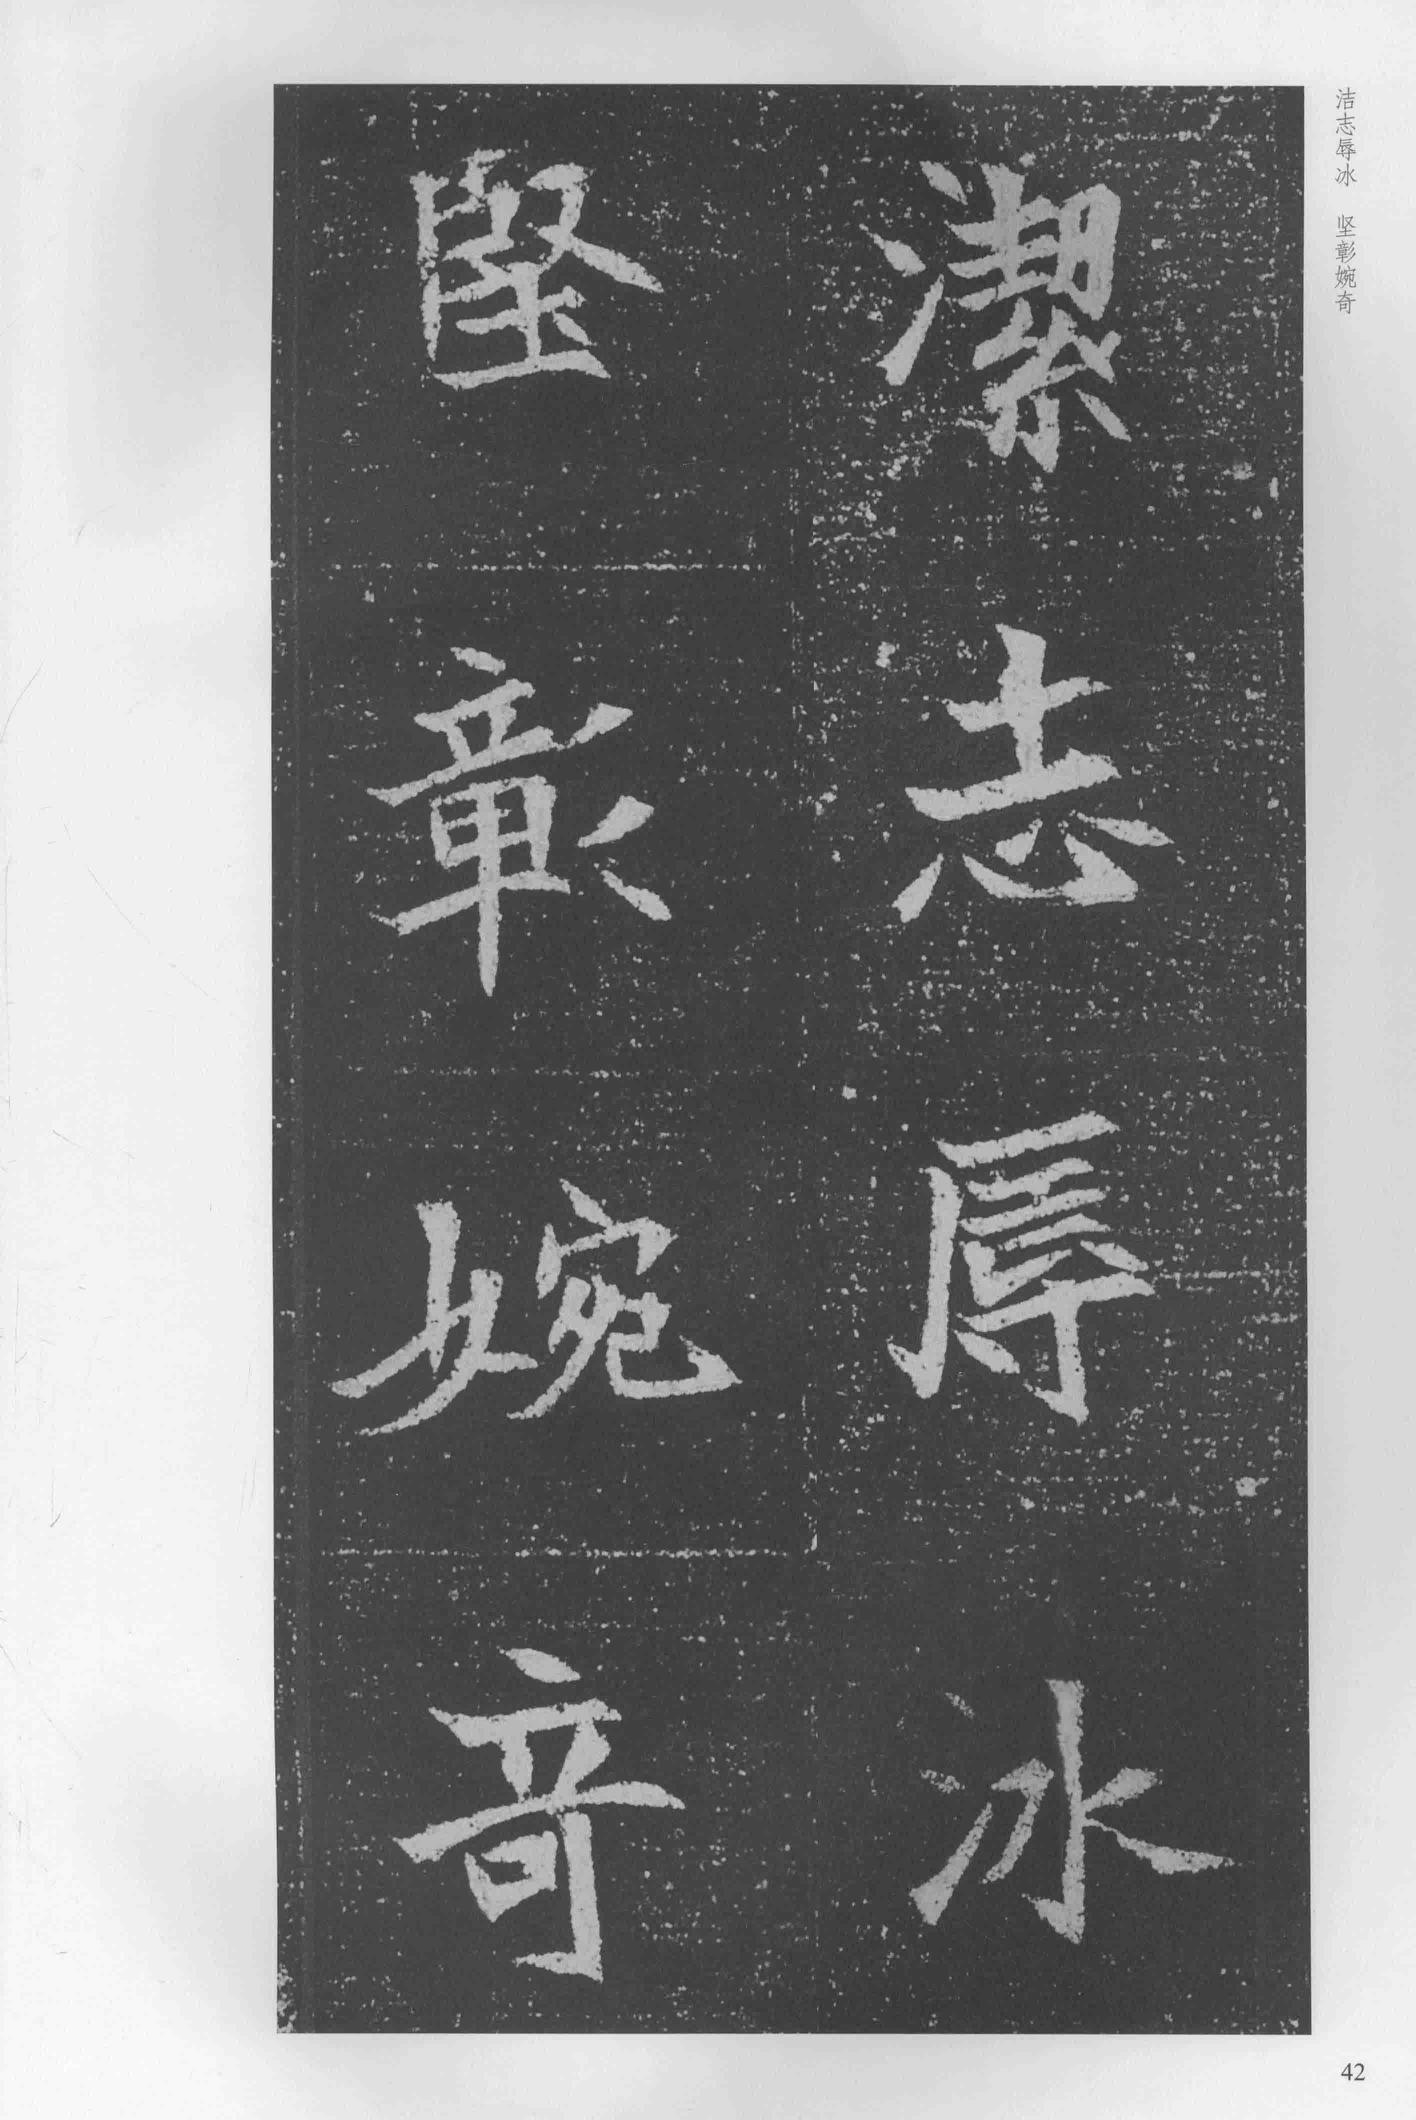 洁志辱冰　坚彰婉奇
潔志辱冰
堅彰婉奇
42